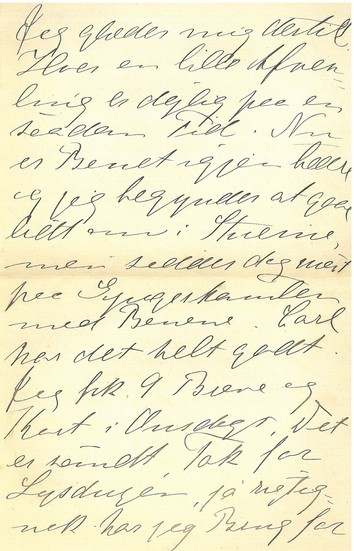 Jeg glæder mig dertil.
Hver en lille Afvex-
ling er dejlig paa en
saadan Tid. Nu
er Benet igjen bedre
og jeg begynder at gaa
lidt om i Stuerne,
men sidder dog mest
paa Syngekamler
med Benene. Carl
har det helt godt.
Jeg fik 9 Breve og
Kort i Onsdags. Det
er sandt, Tak for
Lysdugen, ja rigtig-
nok har jeg Brug for